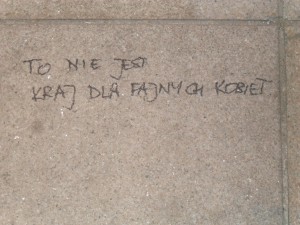 TO NIE JEST
KRAJ DLA FAJNYCH KOBIET